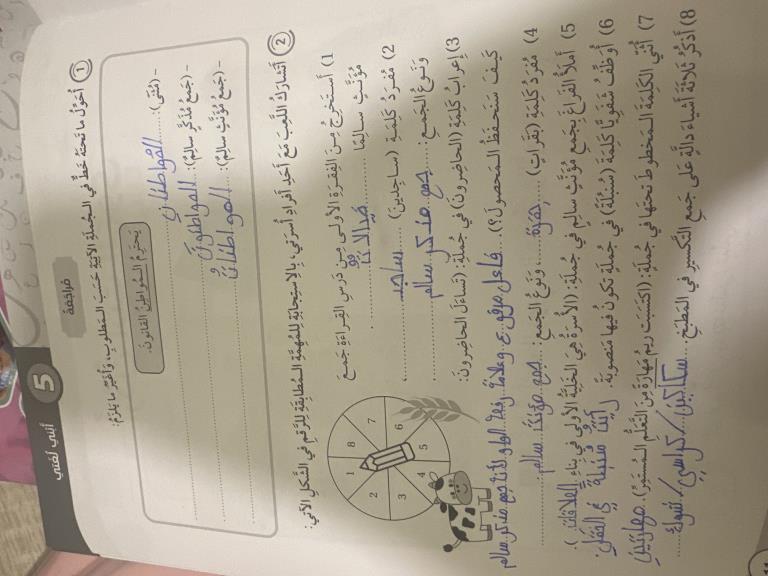 أَبْني لُغَتي
5
مُراجَعَةٌ
1 أُحَوِّلُ ما تَحْتَهُ خَطٌّ في الجُمْلَةِ الآتِيَةِ حَسَبَ المَطْلوبِ، وَأُغَيِّرُ ما يَلْزَمُ:
يَحْتَرِمُ المُواطِنُ القانونَ.
- (مُثَنّى): المواطنانِ
- (جَمْعُ مُذَكَّرٍ سالِمٌ): المواطنونَ
- (جَمْعُ مُؤَنَّثٍ سالِمٌ): المواطناتُ
2 أَتَشارَكُ اللَّعِبَ مَعَ أَحَدِ أَفْرادِ أُسْرَتي، بِالاسْتِجابَةِ لِلْمُهِمَّةِ المُطابِقَةِ لِلرَّقْمِ في الشَّكْلِ الآتي:
1 2 3 4 5 6 7 8
1) أَسْتَخْرِجُ مِنَ الفِقْرَةِ الأولى مِنْ دَرْسِ القِراءَةِ جَمْعَ
مُؤَنَّثٍ سالِمًا
2) مُفْرَدُ كَلِمَةِ (ساجِدينَ) ... ساجد
وَنَوْعُ الجَمْعِ: جمع مذكر سالم
3) إِعْرابُ كَلِمَةِ (الحاضِرونَ) في جُمْلَةِ: (تَساءَلَ الحاضِرونَ:
كَيْفَ سَنَحْفَظُ المَحْصولَ؟). فاعل مرفوع وعلامة رفعه الواو لأنه جمع مذكر سالم
4) مُفْرَدُ كَلِمَةِ (بَقَرات) ... بقرة ... وَنَوْعُ الجَمْعِ: جمع مؤنث سالم
5) أَمْلَأُ الفَراغَ بِجَمْعِ مُؤَنَّثٍ سالِمٍ في جُمْلَةِ: (الأُسْرَةُ هِيَ اللَّبِنَةُ الأولى في بِناءِ العلاقات).
6) أُوَظِّفُ شَفَوِيًّا كَلِمَةَ (سُنْبُلَة) في جُمْلَةٍ تَكونُ فيها مَنْصوبَةً. سنبلة في الحقل
7) أُثَنّي الكَلِمَةَ المَخْطوطَ تَحْتَها في جُمْلَةِ: (اكْتَسَبَتْ ريمُ مَهارَةً مِنَ التَّعَلُّمِ المُسْتَمِرِّ) مهارتين
8) أَذْكُرُ ثَلاثَةَ أَشْياءَ دالَّةٍ عَلى جَمْعِ التَّكْسيرِ في المَطْبَخِ. سكاكين / كراسي / شوك